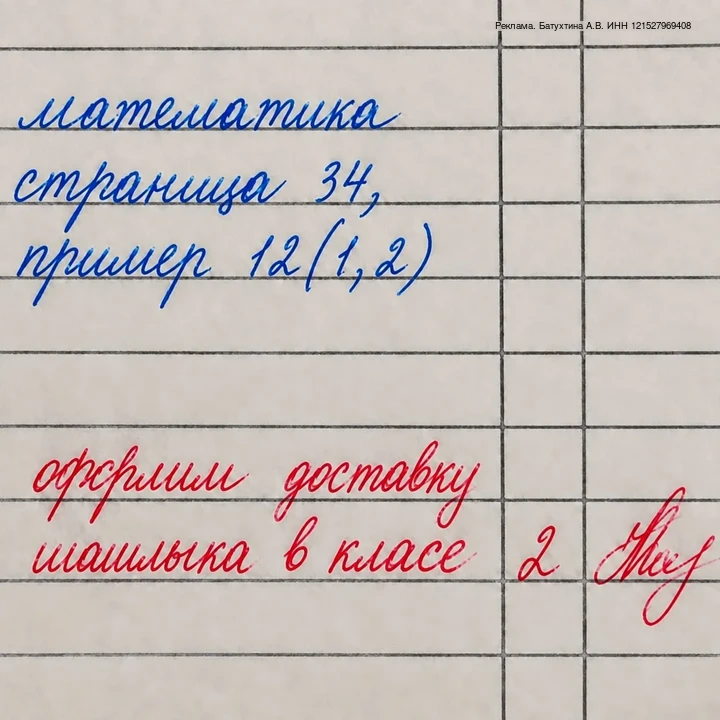 Реклама. Батухтина А.В. ИНН 121527969408
математика
страница 34,
пример 12(1,2)
оформлим доставку
шашлыка в класе 2